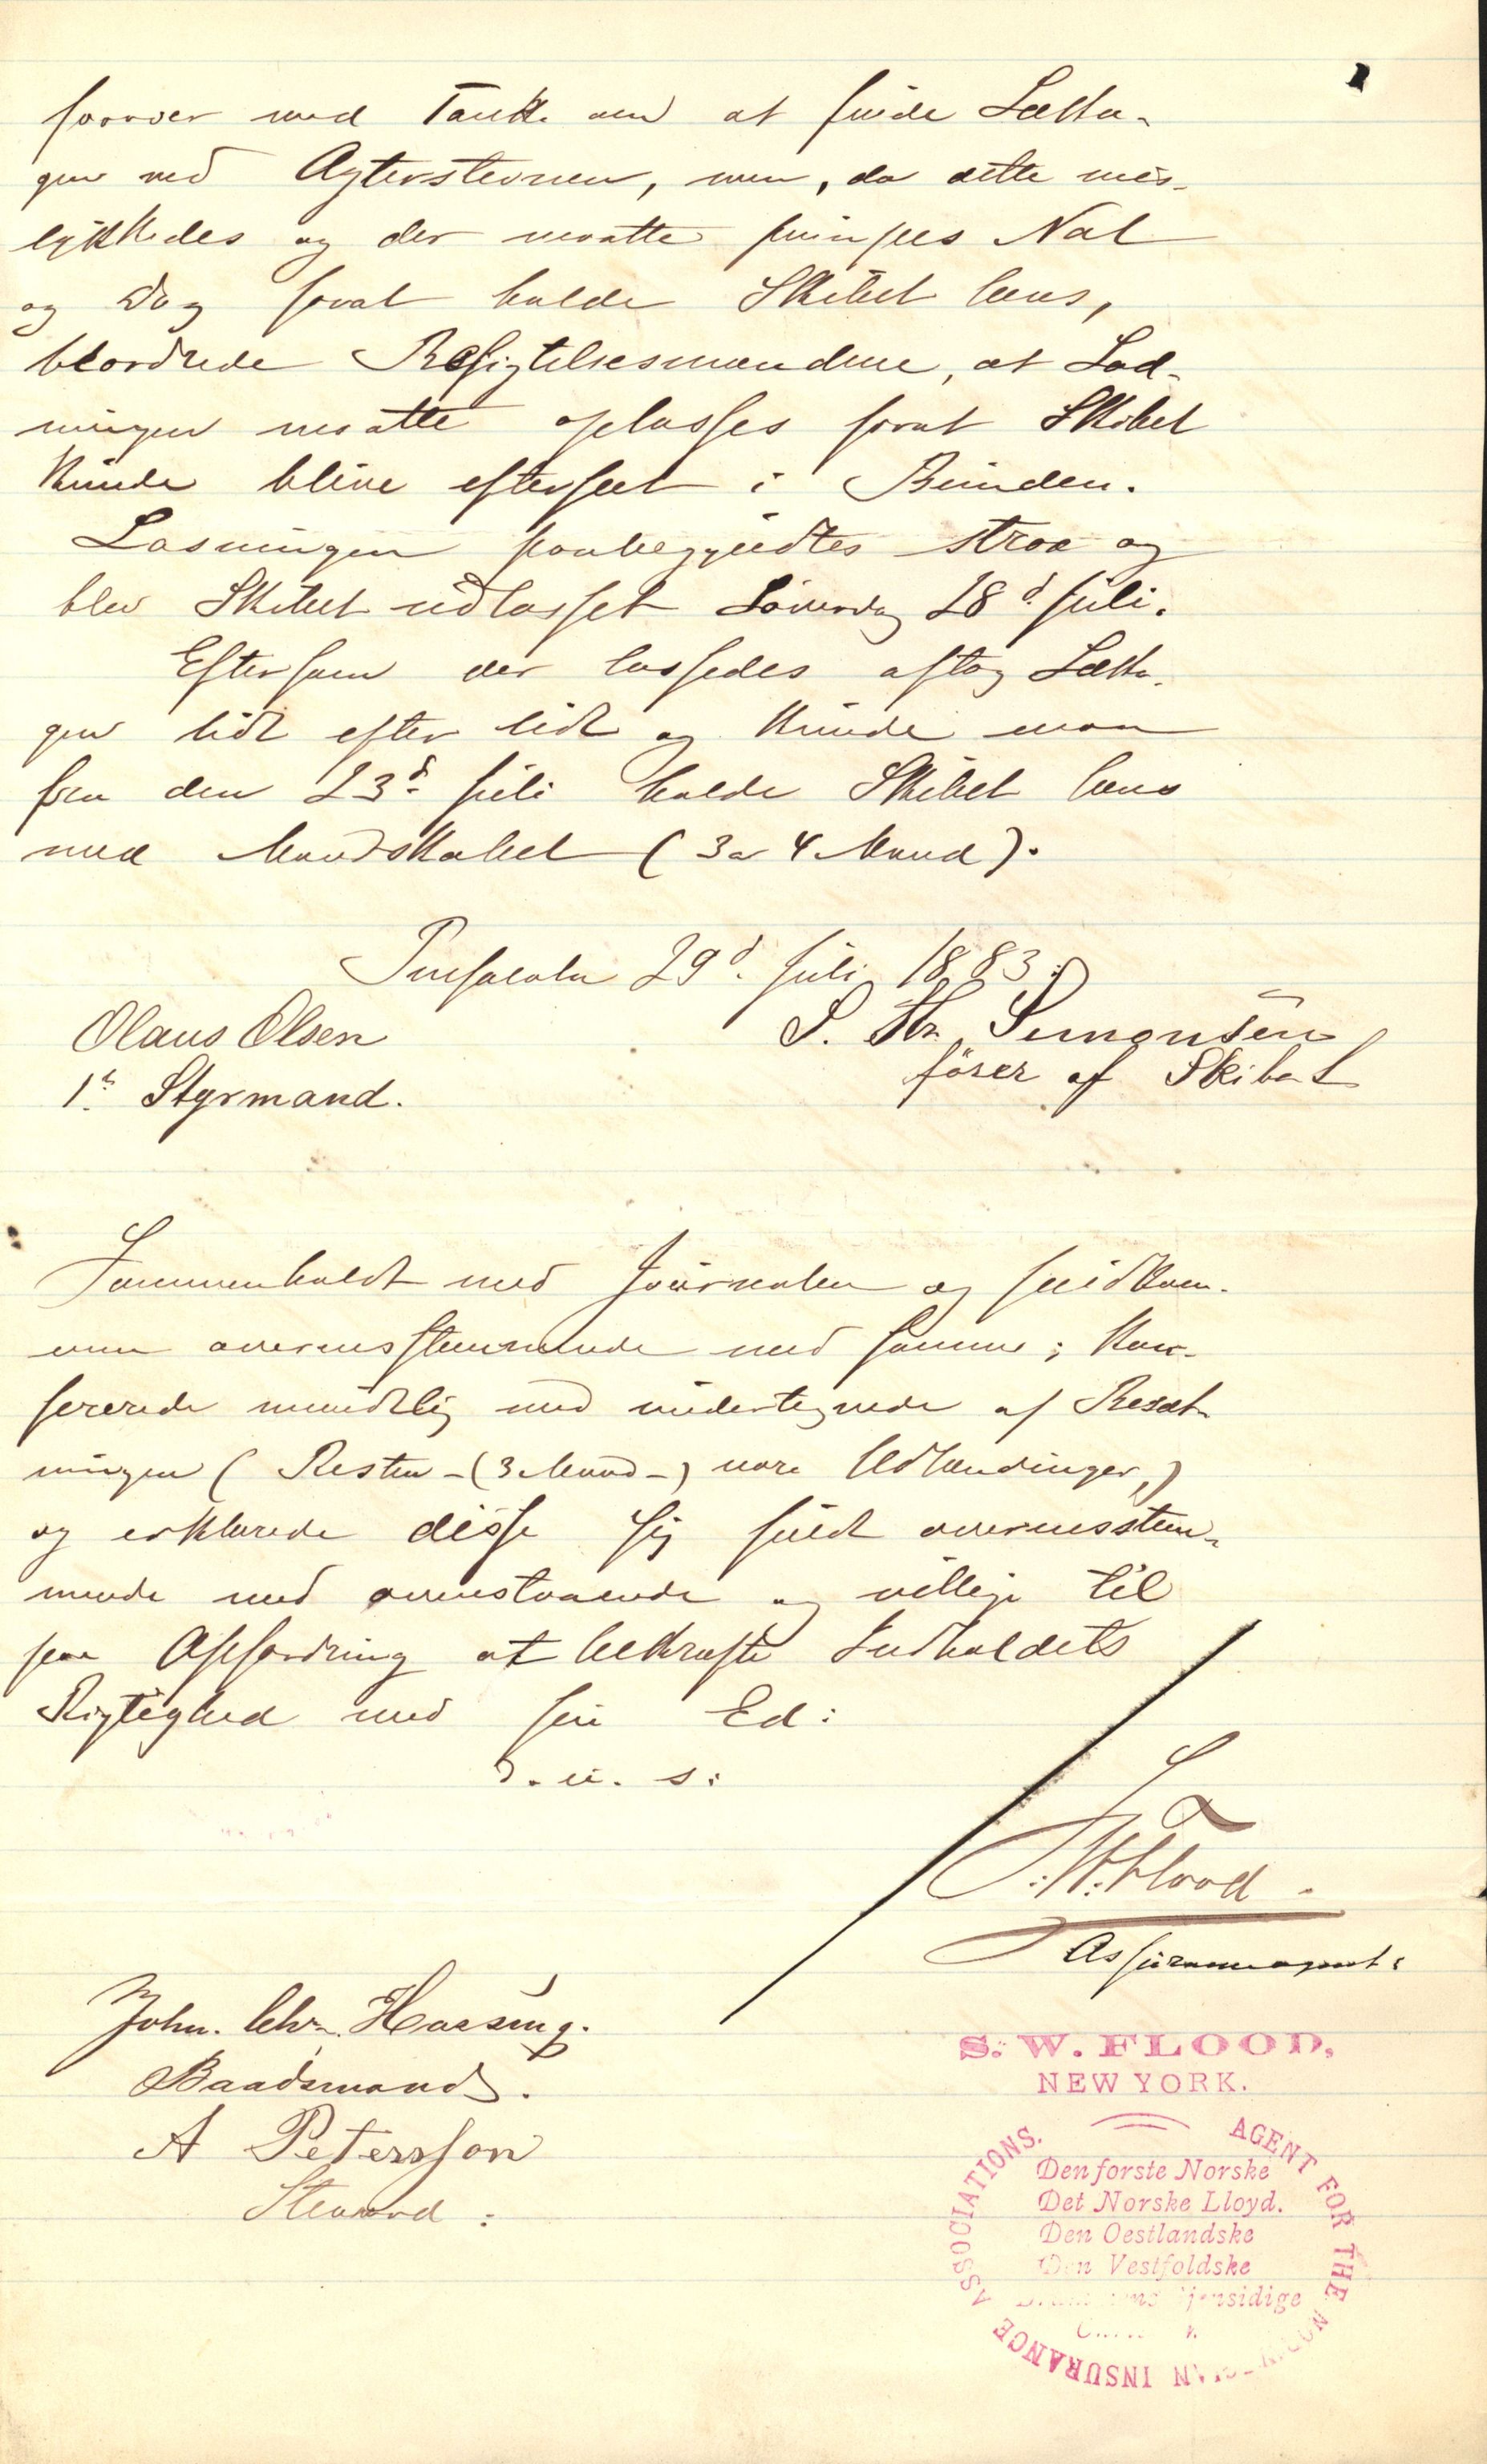 forover med Tanke om at finde Lækka-
gen ved Agterstevnen, men, da dette mis-
lykkedes og der maatte pumpes Nat
og Dag forat holde Skibet læns,
beordrede Besigtelsesmændene, at Lad-
ningen maatte oplosses forat Skibet
kunde blive efterseet i Bunden.
Losningen paabegyndtes strax og
blev Skibet udlosset Löverdag 28d Juli.
Eftersom der lossedes aftog Lækka-
gen lidt efter lidt og kunde man
fra den 23d Juli holde Skibet læns
med Mandskabet (3 a 4 Mand).
Pensacola 29d Juli 1883:
Olaus Olsen
1ste Styrmand.
S. Th. Simonsen
förer af Skibet
Sammenholdt med Journalen og fuldkom-
men overensstemmende med samme; kon-
fererede mundtlig med undertegnede af Besæt-
ningen (Resten -(3 Mand-) vare Udlændinger,)
og erklærede disse sig fuldt overensstem-
mende med ovenstaaende og villige til
paa Opfordring at bekræfte Indholdets
Rigtighed med sin Ed:
D. u. s:
S. W. Flood.
Assuranceagent:
John. Chr. Hassing.
Baadsmand.
A Petersson
Steward:
S. W. FLOOD,
NEW YORK.
AGENT FOR THE NORWEGIAN INSURANCE ASSOCIATIONS.
Den forste Norske
Det Norske Lloyd.
Den Oestlandske
Den Vestfoldske
jensidige